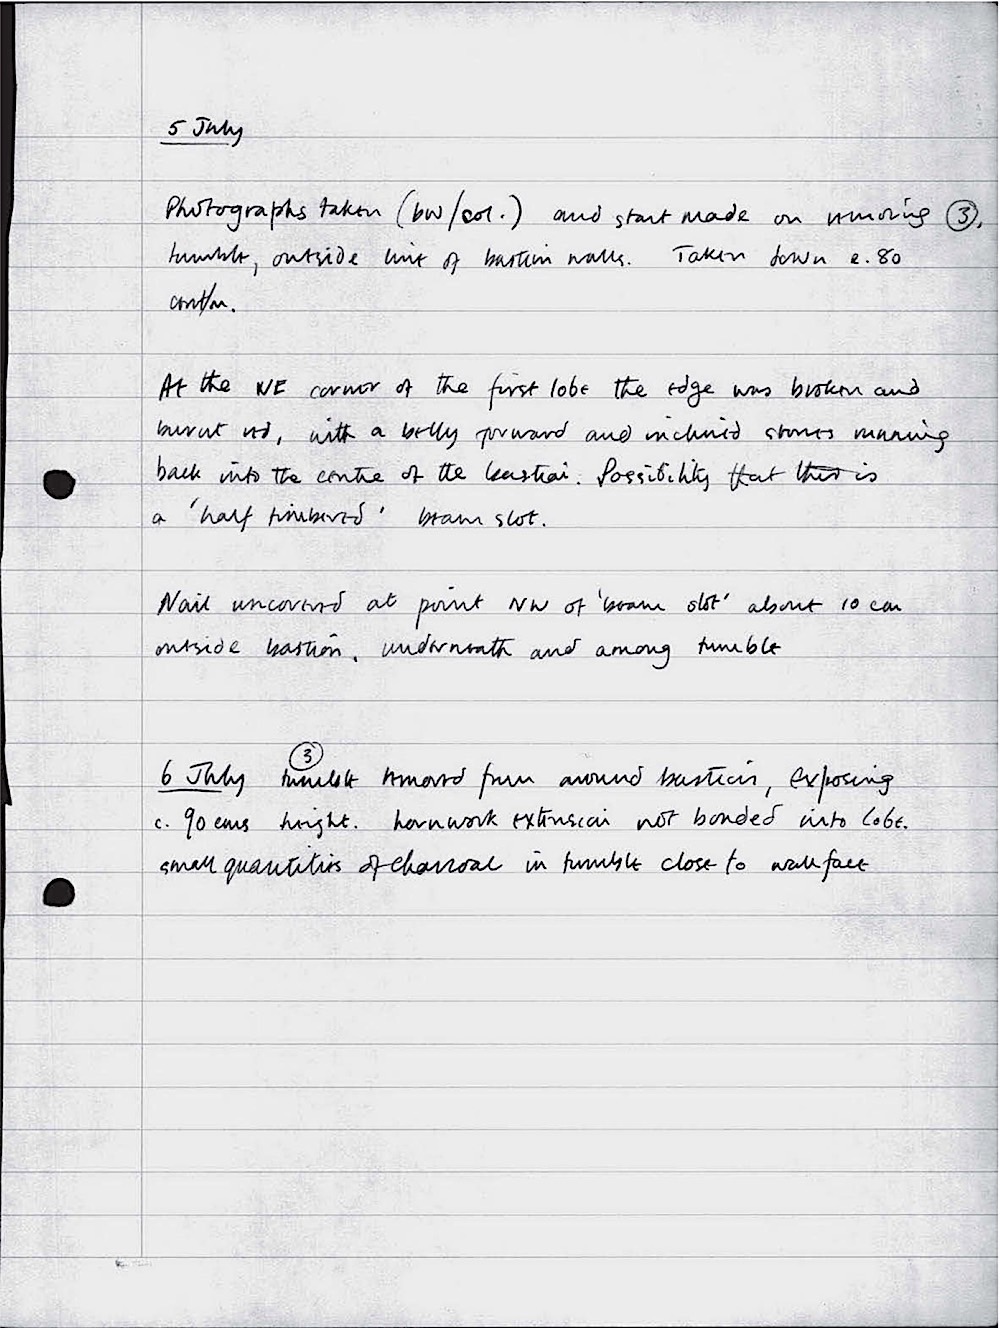 5 July
Photographs taken (bw/col.) and start made on removing ③,
tumble, outside line of bastion walls. Taken down c. 80
cm/m.
At the NE corner of the first lobe the edge was broken and
burnt red, with a belly forward and inclined stones running
back into the centre of the bastion. Possibility that this is
a 'half timbered' beam slot.
Nail uncovered at point NW of 'beam slot' about 10 cm
outside bastion, underneath and among tumble
③
6 July tumble removed from around bastion, exposing
c. 90 cms height. hornwork extension not bonded into lobe.
small quantities of charcoal in tumble close to wall face